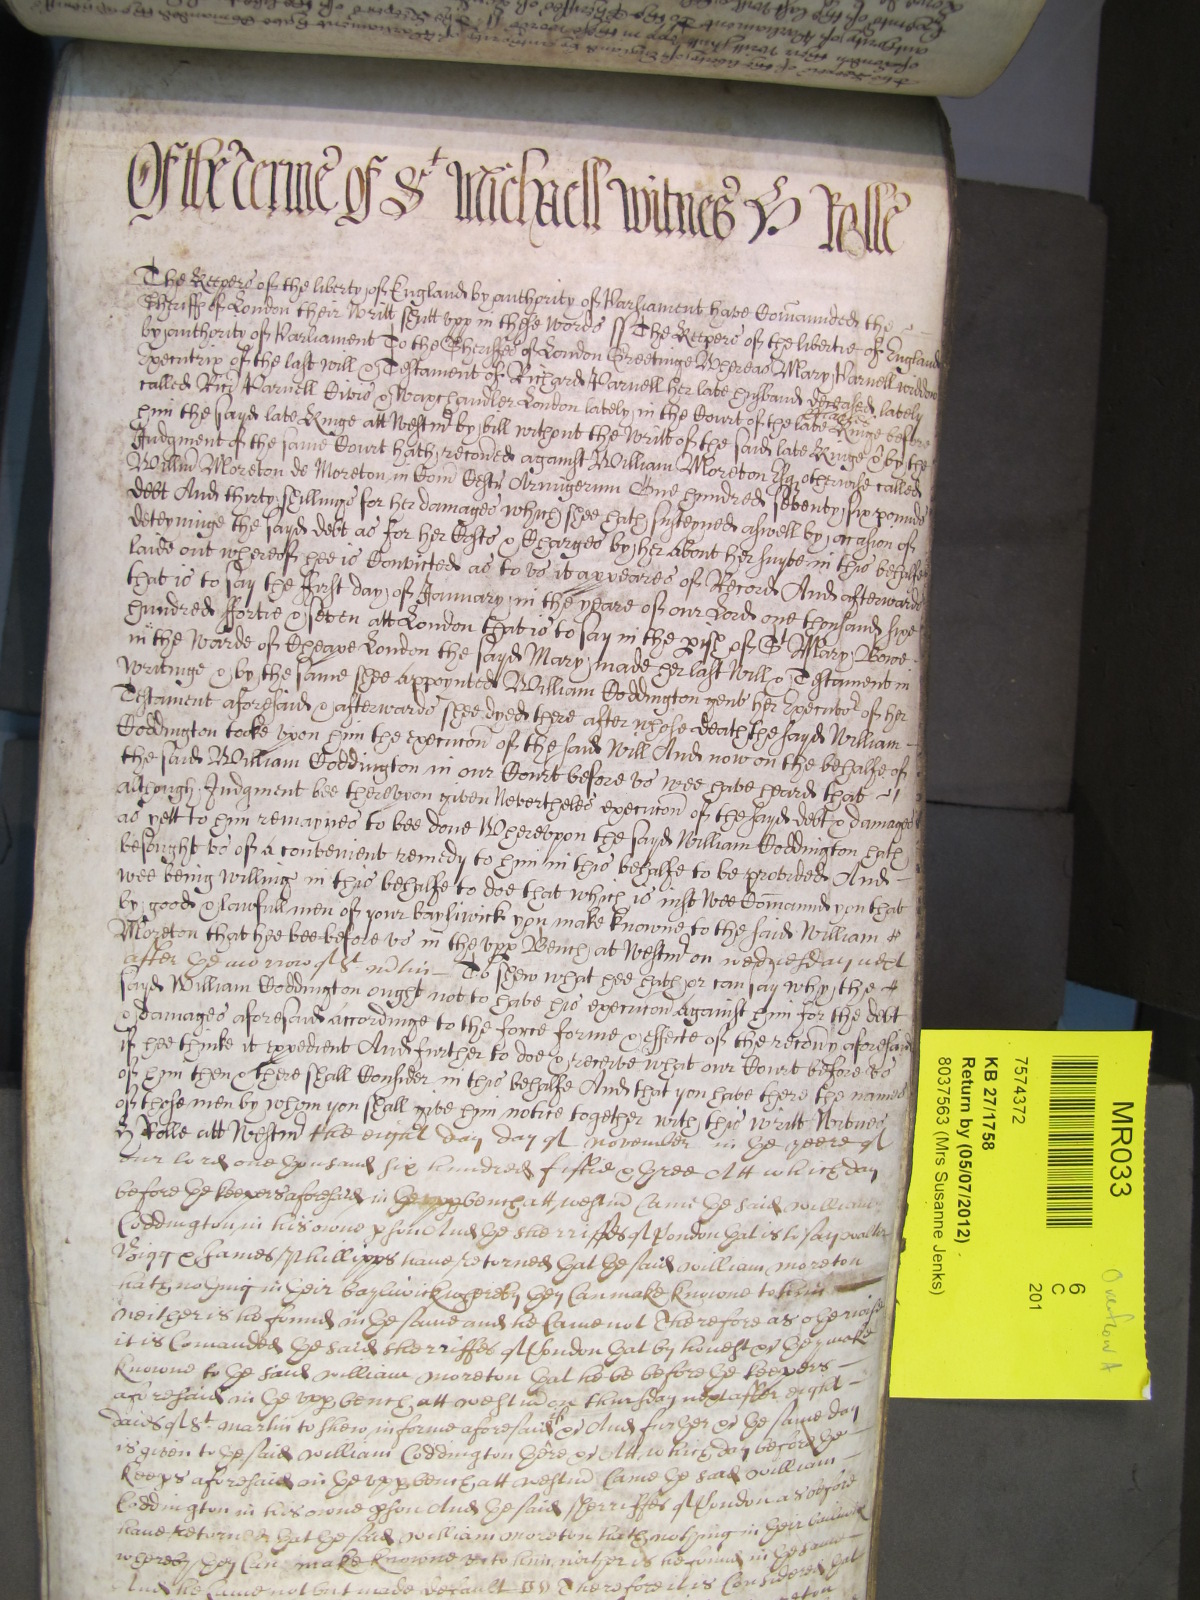 Of the Terme of St Michaell witnes H Rolle
The Keepers of the liberty of England by authority of Parliament have Comaunded the
Sheriffs of London their Writt shutt upp in these words ss The Keepers of the libertie of England
by authority of Parliament To the Sheriffes of London Greetinge Whereas Mary Parnell widdow
Executrix of the last will & Testament of Richard Parnell her late husband deceased, lately
called Parnell Civis & Waxchandler London lately in the Court of the late Kinge before
him the sayd late Kinge att Westmr by bill without the Writt of the said late Kinge & by the
Judgment of the same Court hath recoved against William Moreton Esq otherwise called
Willm Moreton de Moreton in Com Cestr Armigerum One hundred seventy six pounds
debt And thirty shillings for her damages which shee hath susteyned aswell by occasion of
deteyninge the sayd debt as for her Costs & Charges by her about her suyte in this behalfe
laide out whereof hee is Convicted as to us it appeares of Record And afterwards
that is to say the first day of January in the yeare of our Lord one thousand sixe
hundred fortie & seven att London that is to say in the pish of St Mary Bowe
in the Warde of Cheape London the sayd Mary made her last Will & Testament in
writinge & by the same shee appoynted William Coddington gent her Executor of her
Testament aforesaid & afterwards shee dyed there after whose death the sayd William
Coddington tooke upon him the execucon of the said Will And now on the behalfe of
the said William Coddington in our Court before us wee have heard that
although Judgment bee thereupon given Nevertheles execucon of the sayd debt & damages
as yett to him remaynes to bee done Whereupon the sayd William Coddington hath
besought us of a convenient remedy to him in this behalfe to be provided And
wee being willing in this behalfe to doe that which is iust Wee Comaund you that
by good & lawfull men of your bayliwick you make knowne to the said William
Moreton that hee bee before us in the upp Bench at Westmr on wednesday next
after the morrow of St Mtin To shew what hee hath or can say why the
sayd William Coddington ought not to have his execucon against him for the debt
& damages aforesaid accordinge to the force forme & effecte of the recovy aforesaid
if hee thinke it expedient And further to doe & receive what our Court before us
of him then & there shall Consider in this behalfe And that you have there the names
of those men by whom you shall give him notice together with this Writt Witnes
H Rolle att Westmr the eight day day of november in the yeere of
our lord one thousand six hundred fiftie & three Att which day
before the keepers aforesaid in the upp bench att westmr Came the said william
Coddington in his owne pson And the sherriffes of London that is to say
Bigg & James Phillipps have returned that the said william moreton
hath nothing in their bayliwick whereby they Can make knowne to him
neither is he found in the same and he Came not Therefore as otherwise
it is Comanded the said sherriffes of London that by honest &c they make
knowne to the said william moreton that he be before the keepers
aforesaid in the upp bench att westmr on thursday next after eight
daies of St martin to shew in forme aforesaid if &c And further &c the same day
is given to the said william Coddington there &c Att which day before the
keeps aforesaid in the upp bench att westmr Came the said william
Coddington in his owne pson And the said sherriffes of London as before
have returned that the said william moreton hath nothing in their bailiwick
whereby they Can make knowne to him neither is he found in the same
And he Came not but made default Therefore it is Considered that
moreton
MR033
7574372
KB 27/1758
Return by (05/07/2012)
8037563 (Mrs Susanne Jenks)
6
C
201
Overflow A